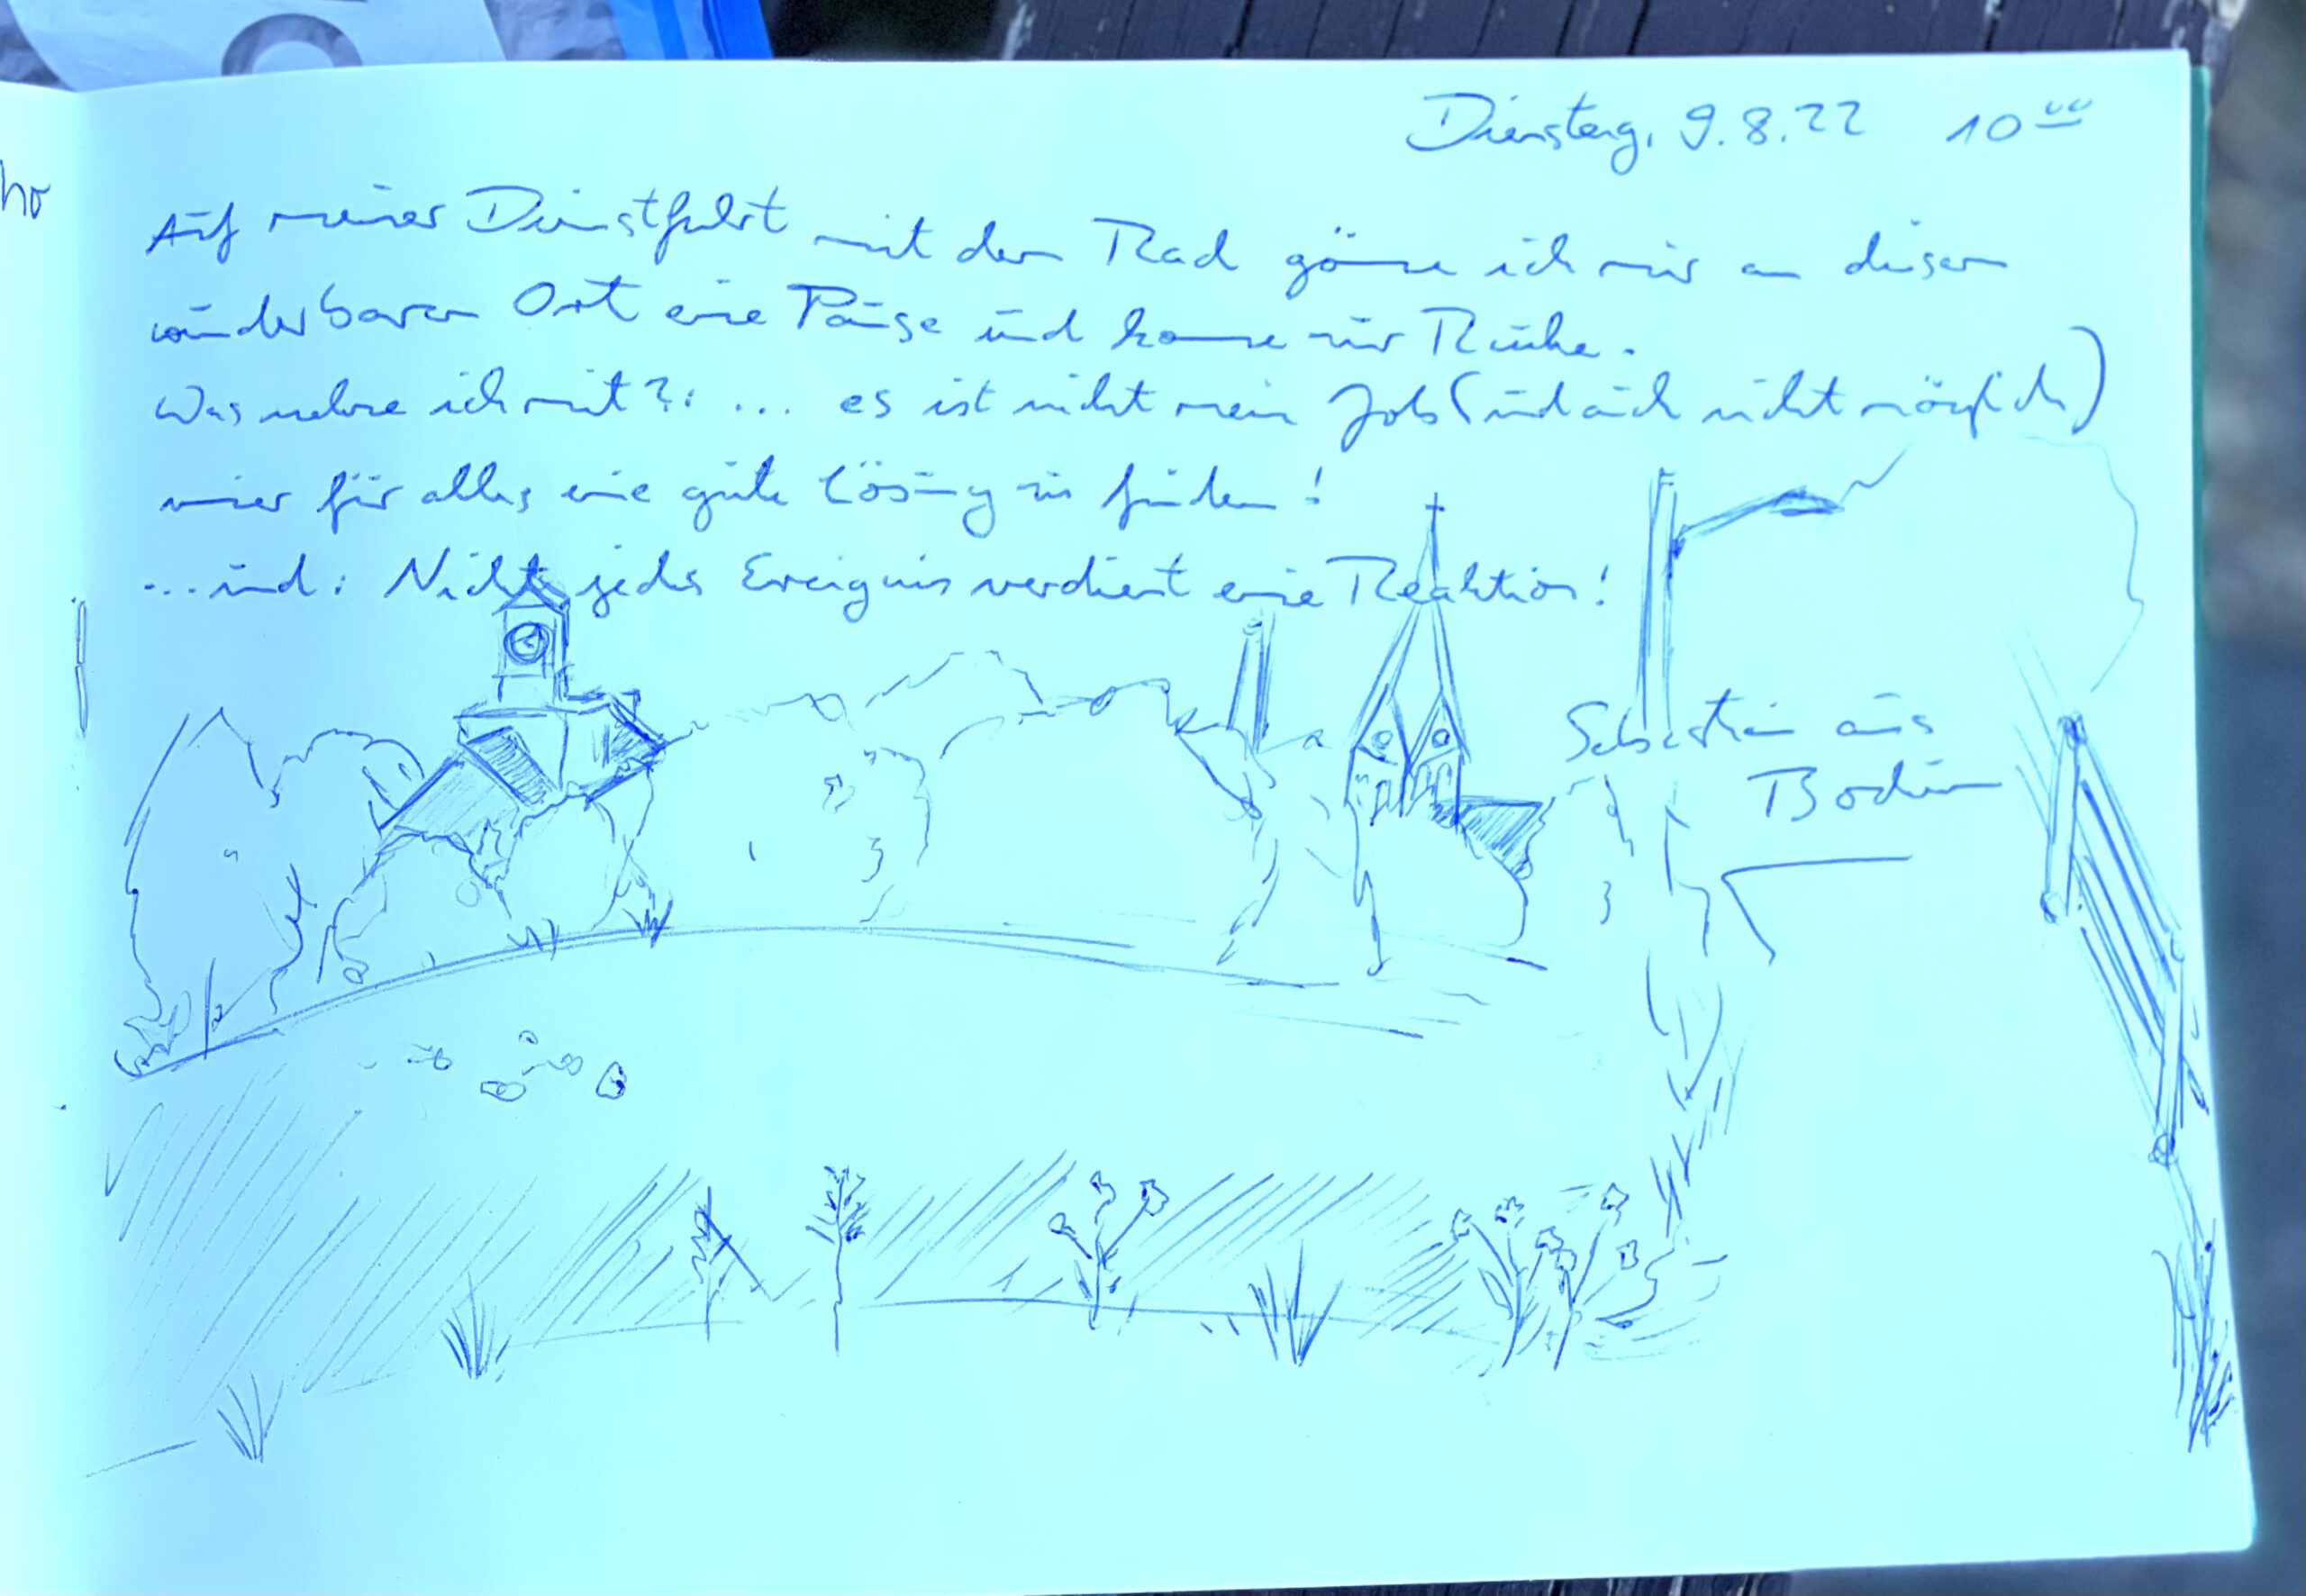 Dienstag, 9.8.22 10⁰⁰
Auf meiner Dienstfahrt mit dem Rad gönne ich mir an diesem
wunderbaren Ort eine Pause und komme zur Ruhe.
Was nehme ich mit?: ... es ist nicht mein Job (und auch nicht möglich)
immer für alles eine gute Lösung zu finden!
...und: Nicht jedes Ereignis verdient eine Reaktion!
Sebastian aus
Bochum